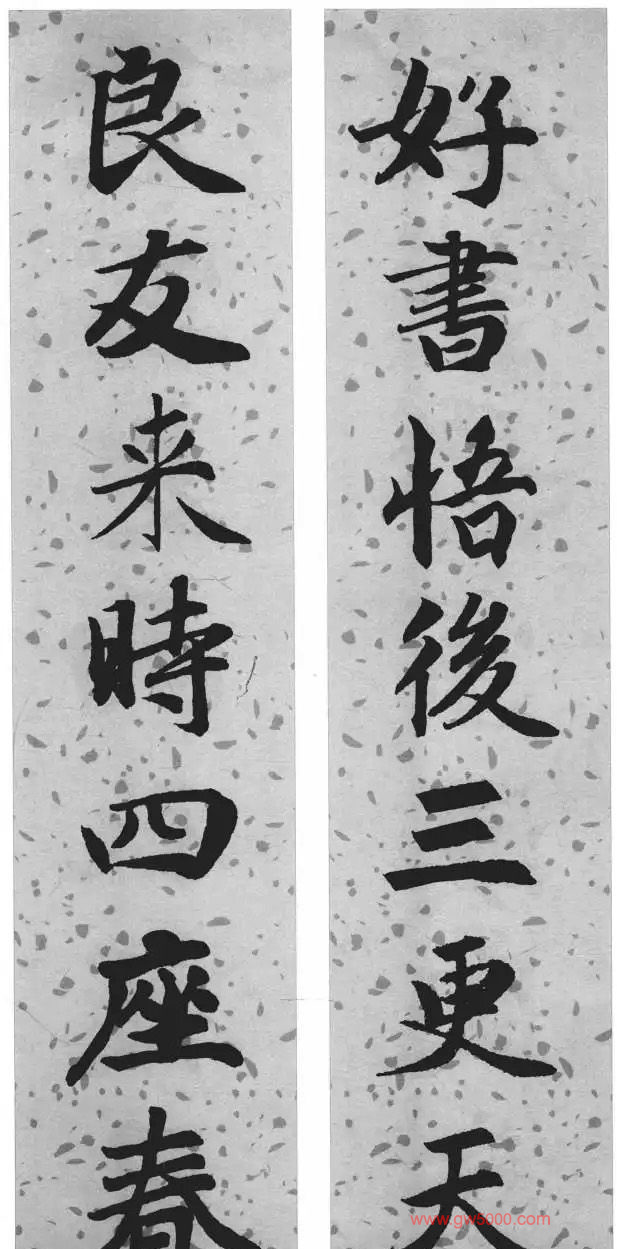 好書悟後三更天
良友来時四座春
www.gw5000.com